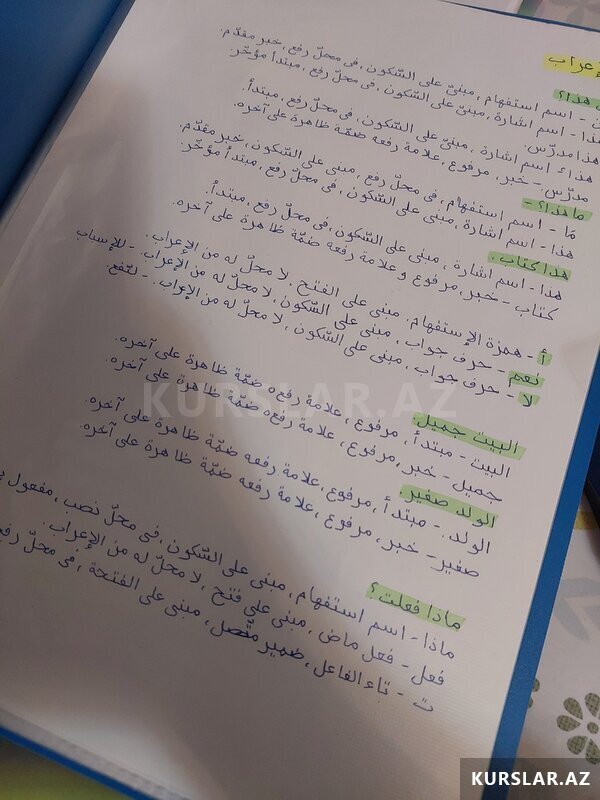 إعراب
هذا؟
اسم استفهام، مبنيّ على السّكون، في محلّ رفع، خبر مقدّم.
هذا - اسم اشارة، مبنيّ على السّكون، في محلّ رفع، مبتدأ مؤخّر.
هذا مدرّس.
هذا - اسم اشارة، مبنى على السّكون، في محلّ رفع، مبتدأ.
مدرّس - خبر، مرفوع، علامة رفعه ضمّة ظاهرة على آخره.
ما هذا؟ -
مَا - اسم استفهام، في محلّ رفع، مبنى على السّكون، خبر مقدّم.
هذا - اسم اشارة، مبنى على السّكون، في محلّ رفع، مبتدأ مؤخّر.
هذا كتاب.
هذا - اسم اشارة، مبنى على السّكون، في محلّ رفع، مبتدأ.
كتاب - خبر، مرفوع و علامة رفعه ضمّة ظاهرة على آخره.
أ - همزة الإستفهام. مبنى على الفتح. لا محلّ له من الإعراب.
نعم - حرف جواب، مبنى على السّكون، لا محلّ له من الإعراب. - للإسباب
لا - حرف جواب، مبنى على السّكون، لا محلّ له من الإعراب. -
البيت جميل.
البيت - مبتدأ، مرفوع، علامة رفعه ضمّة ظاهرة على آخره.
جميل - خبر، مرفوع، علامة رفعه ضمّة ظاهرة على آخره.
الولد صفير.
الولد. - مبتدأ، مرفوع، علامة رفعه ضمّة ظاهرة على آخره.
صفير - خبر، مرفوع، علامة رفعه ضمّة ظاهرة على آخره.
ماذا فعلت؟
ماذا - اسم استفهام، مبنى على السّكون، في محلّ نصب، مفعول
فعل - فعل ماض، مبنى على فتح، لا محلّ له من الإعراب.
ت - تاء الفاعل، ضمير متّصل، مبنى على الفتحة، في محلّ
KURSLAR.AZ
KURSLAR.AZ